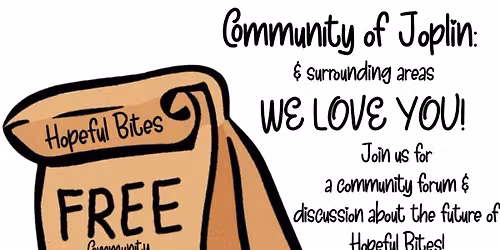 Community of Joplin:
& surrounding areas
WE LOVE YOU!
Join us for
a community forum &
discussion about the future of
Hopeful Bites!
Hopeful Bites
FREE
Community